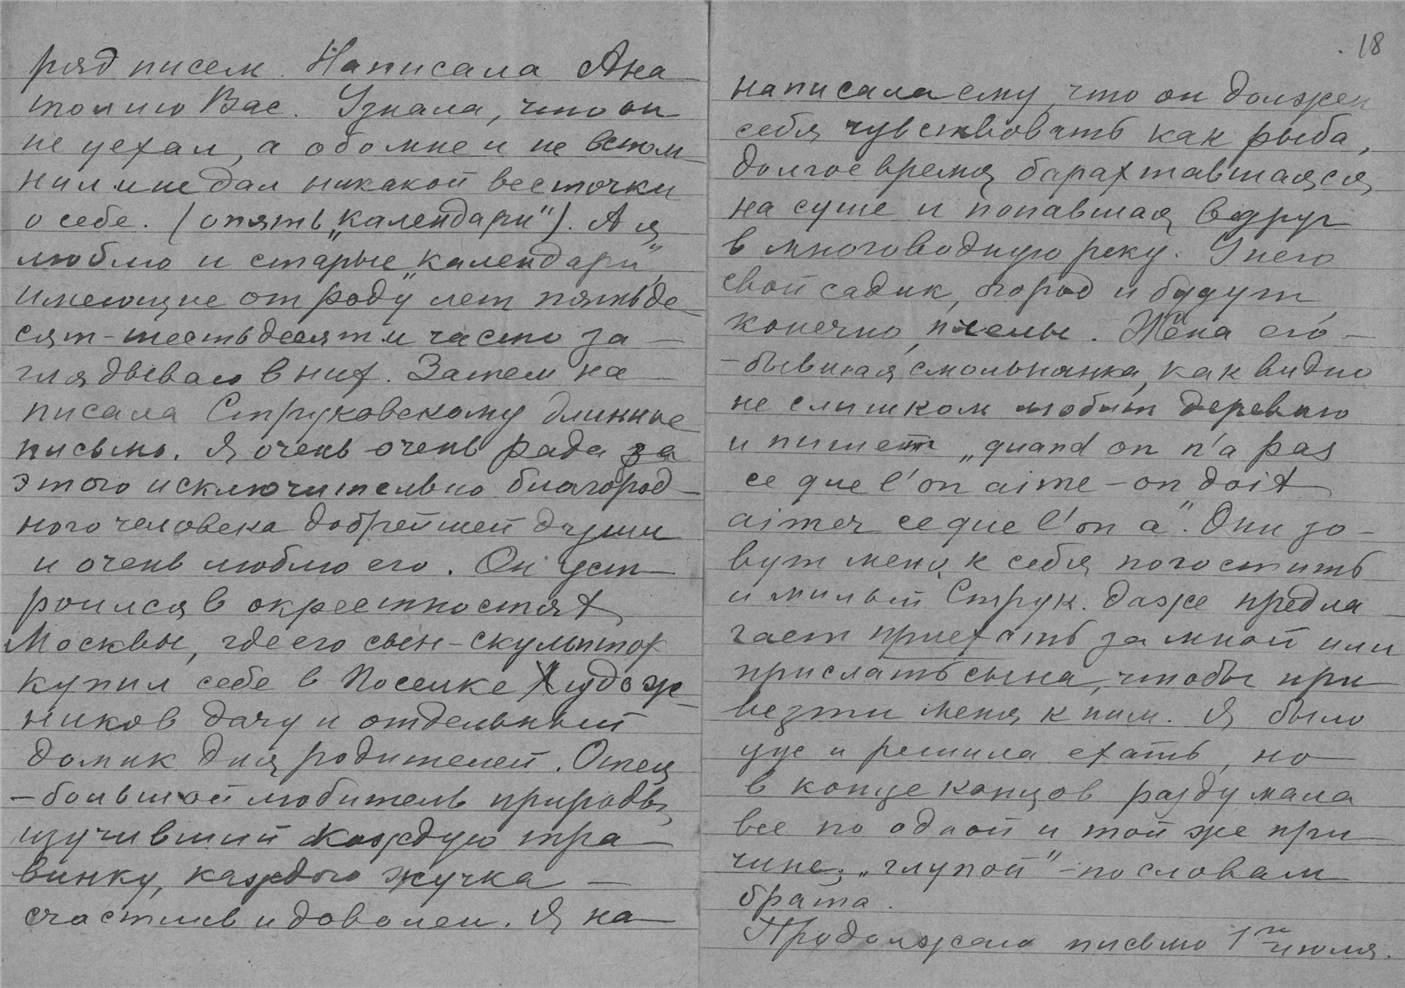 ряд писем. Написала Ана
толию Вас. Узнала, что он
не уехал, а обо мне и не вспом
нил и не дал никакой весточки
о себе. (опять „календари"). А я
люблю и старые „календари",
имеющие от роду лет пятьде
сят-шестьдесят и часто за—
глядываю в них. Затем на—
писала Струковскому длинные
письмо. Я очень очень рада за
этого исключительно благород—
ного человека добрейшей души
и очень люблю его. Он уст—
роился в окрестностях
Москвы, где его сын-скульптор
купил себе в Поселке Худож—
ников дачу и отдельный
домик для родителей. Отец
—большой любитель природы,
изучивший каждую тра—
винку, каждого жучка—
счастлив и доволен. Я на—
18
написала ему, что он должен
себя чувствовать как рыба,
долгое время барахтавшаяся
на суше и попавшая вдруг
в многоводную реку. У него
свой садик, огород и будут,
конечно, пчелы. Жена его—
—бывшая смольнянка, как видно
не слишком любит деревню
и пишет „quand on n'a pas
ce que l'on aime—on doit
aimer ce que l'on a". Они зо—
вут меня к себя погостить
и милый Струк. даже предла—
гает приехать за мной или
прислать сына, чтобы при
везти меня к ним. Я было
уже и решила ехать, но—
в конце концов раздумала
все по одной и той же при—
чине, „глупой"—по словам
брата.
Продолжаю письмо 1го июля.